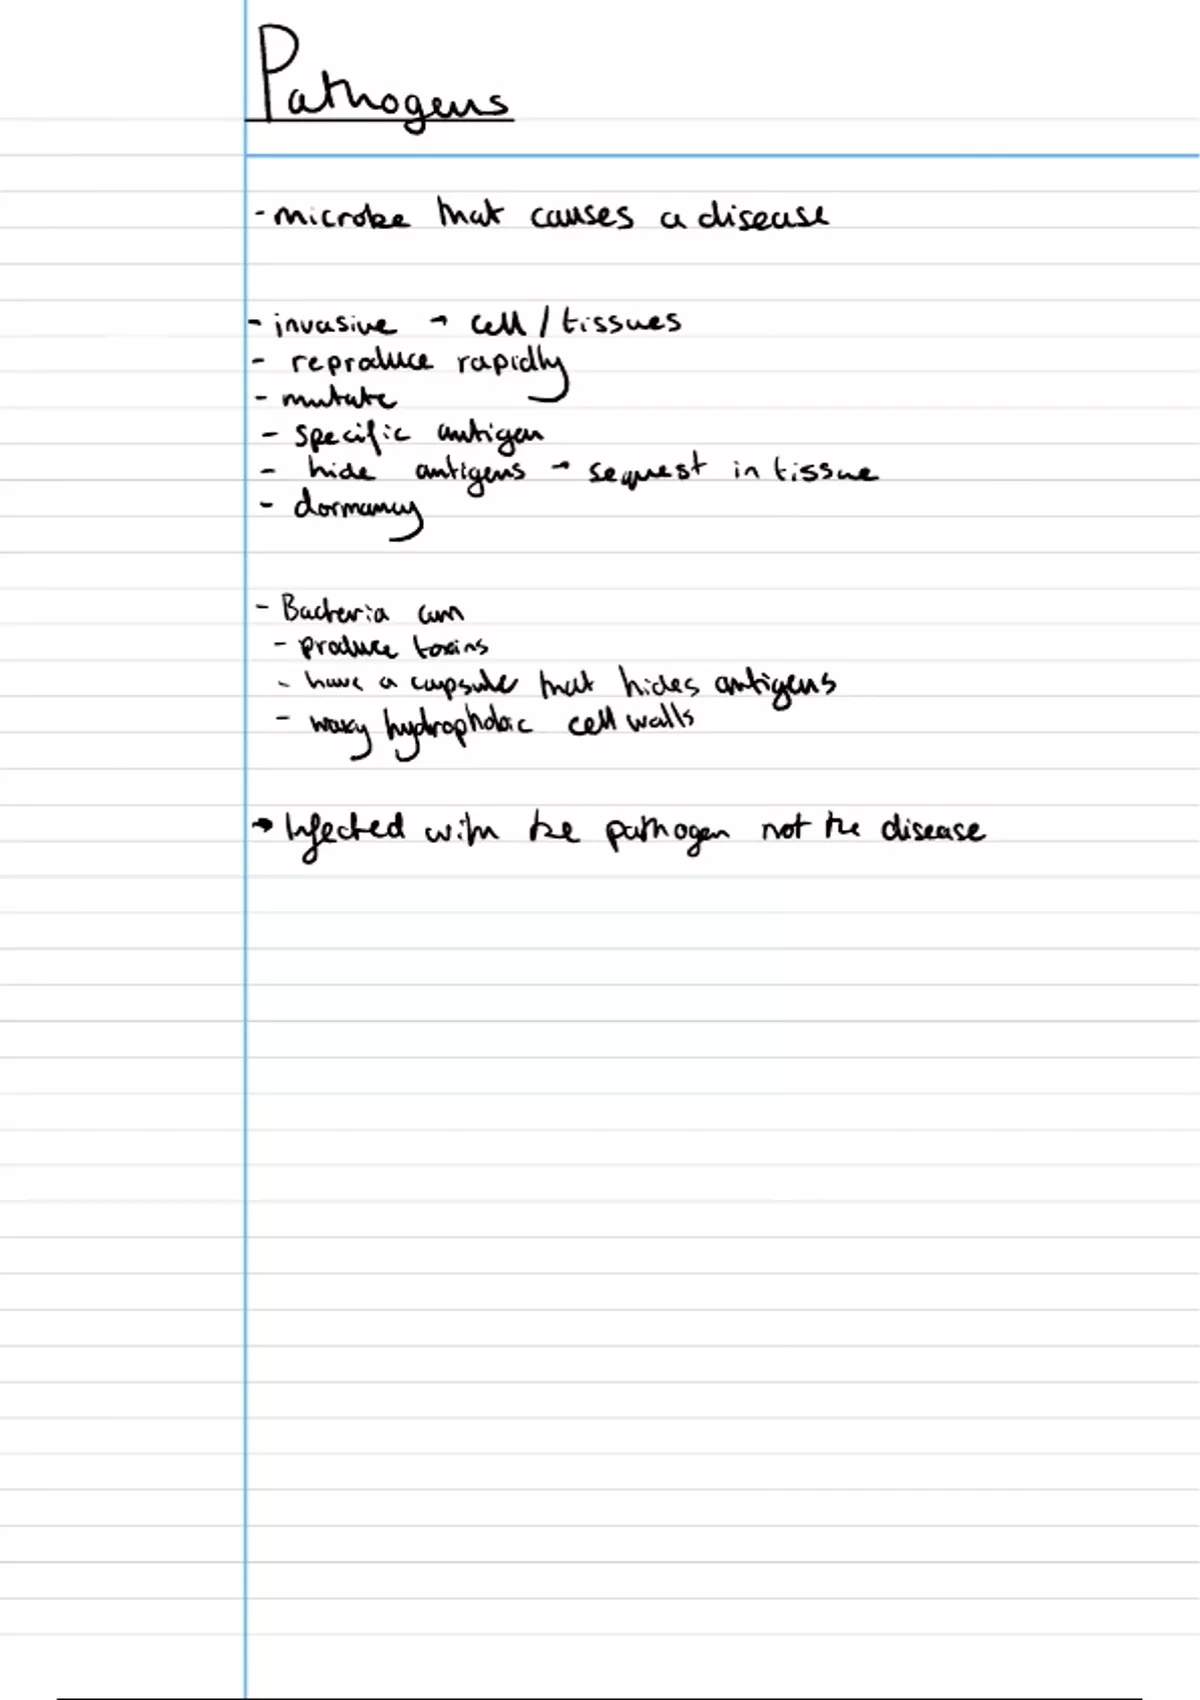 Pathogens
- microbe that causes a disease
- invasive → cell / tissues
- reproduce rapidly
- mutate
- specific antigen
- hide antigens → sequest in tissue
- dormancy
- Bacteria can
- produce toxins
- have a capsule that hides antigens
- waxy hydrophobic cell walls
→ Infected with the pathogen not the disease